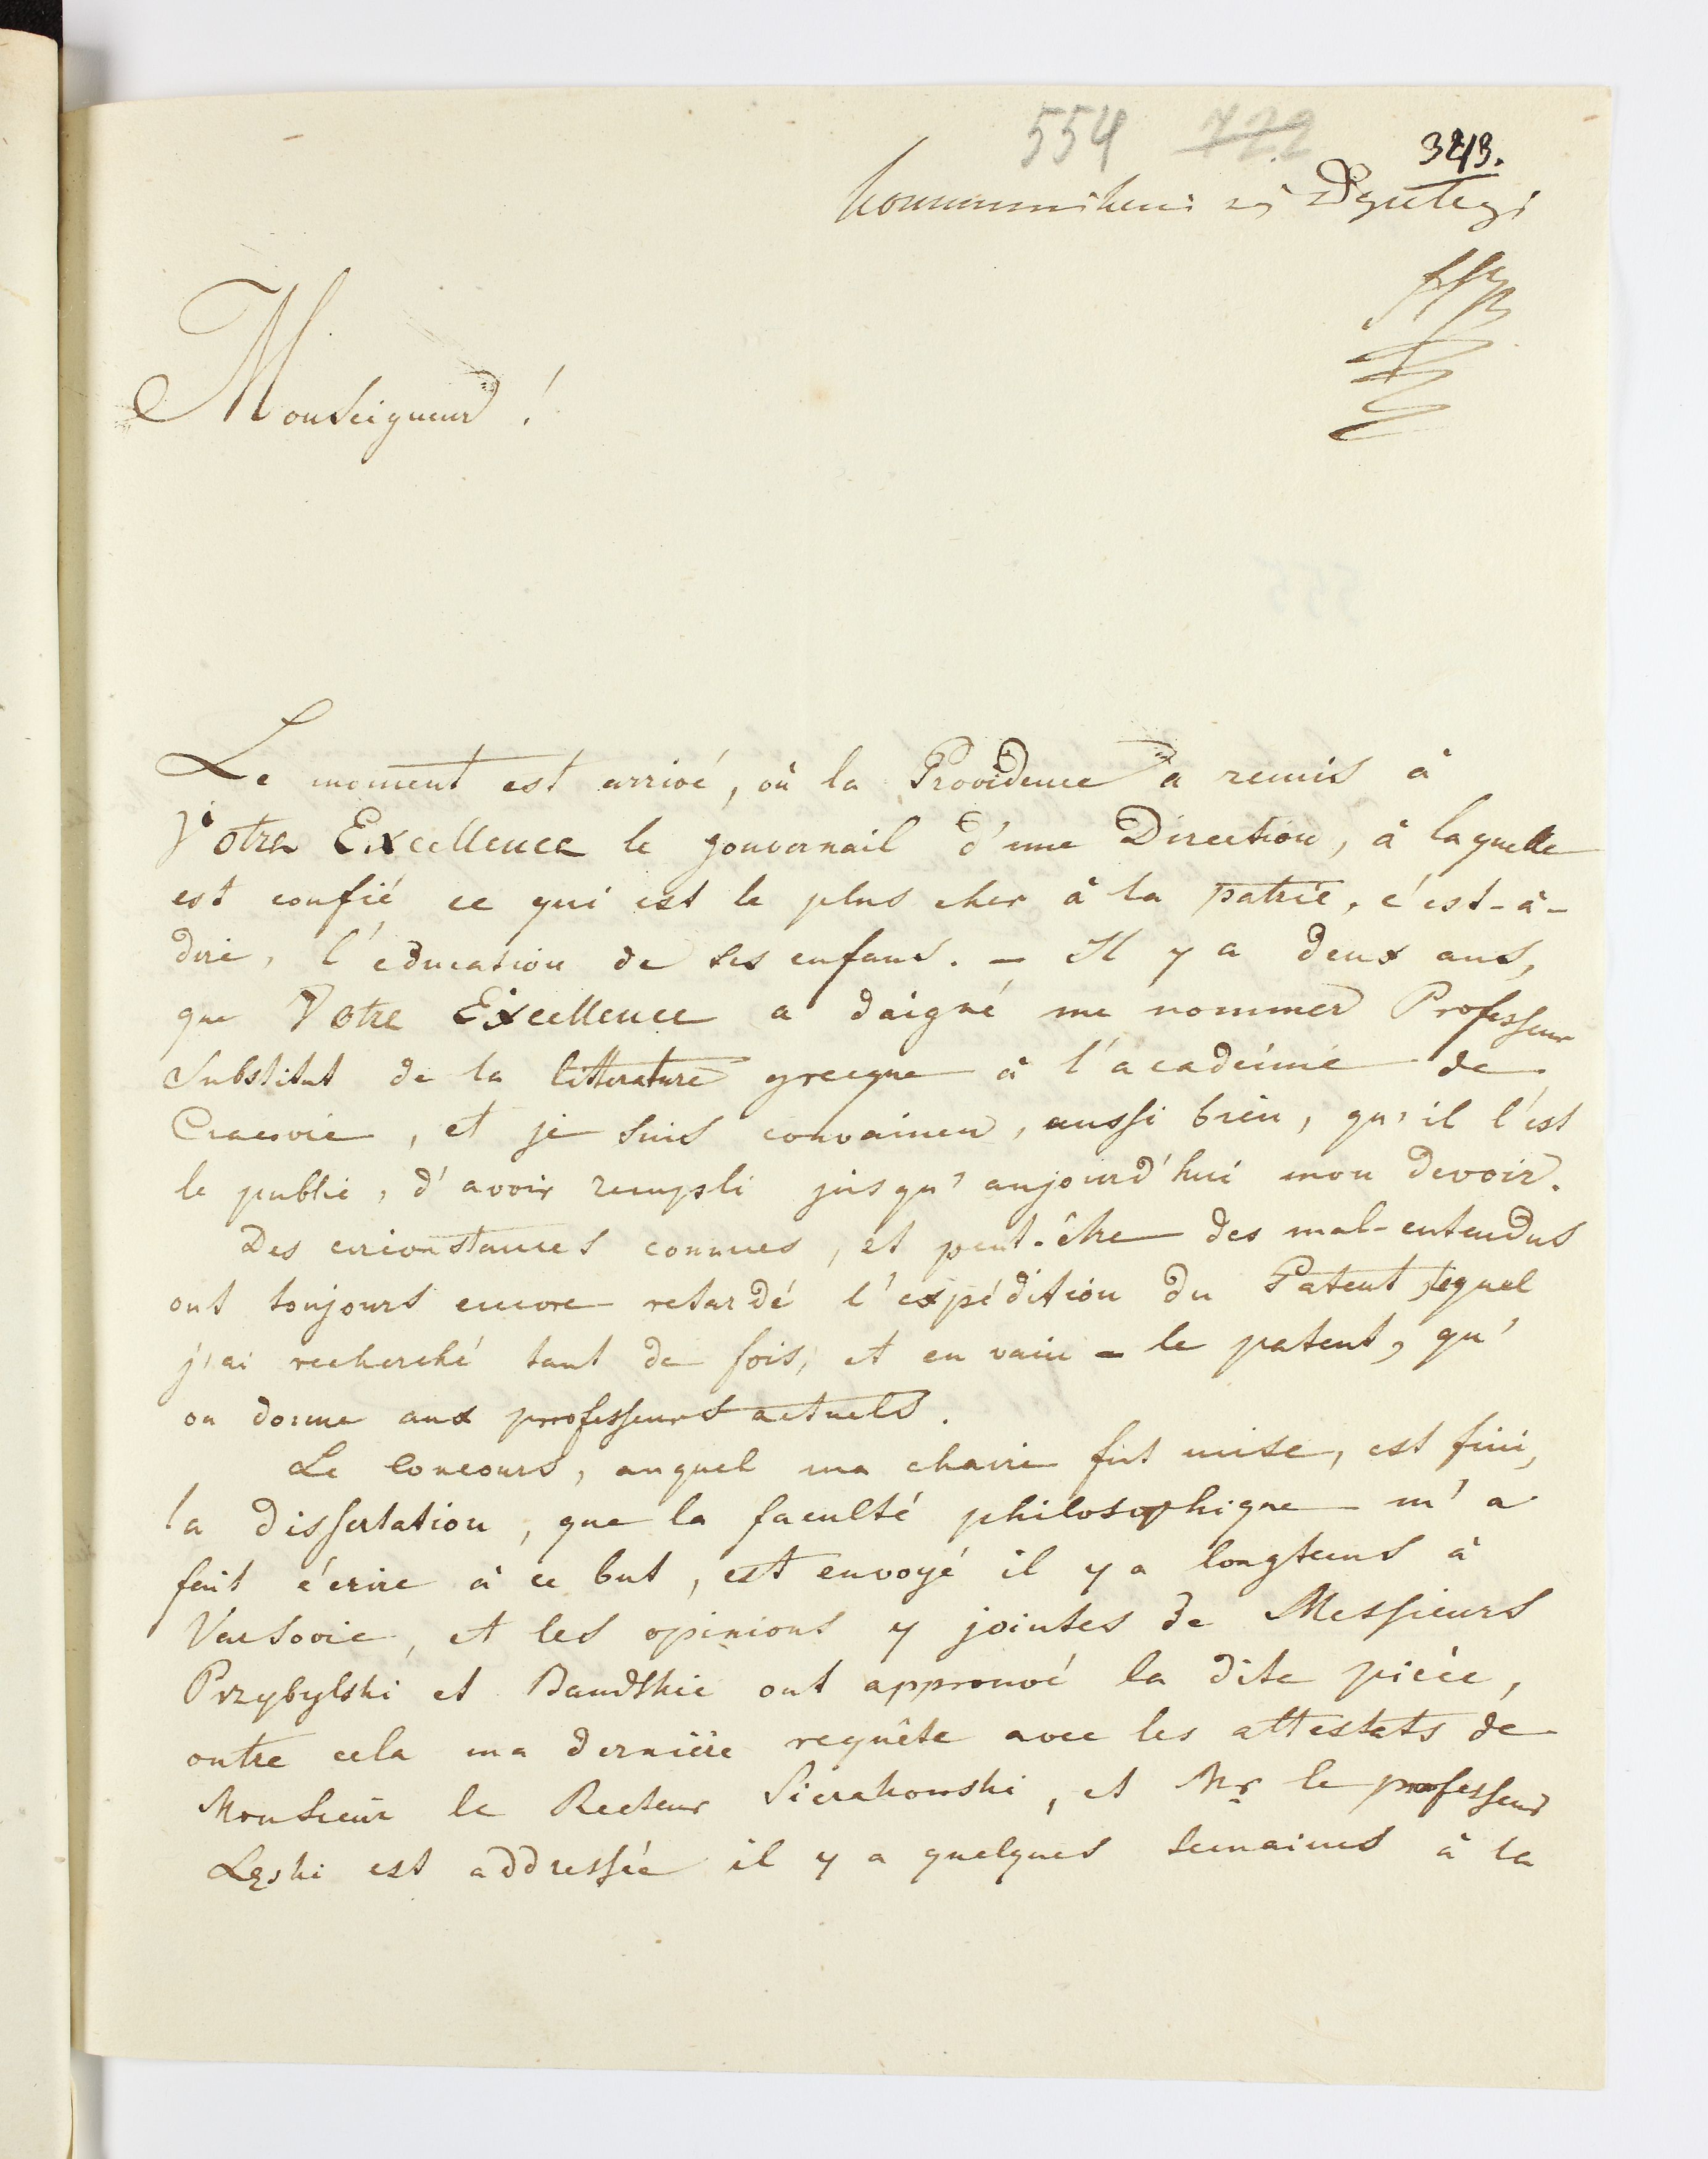 554 722
323.
Monseigneur !
Le moment est arrivé, où la Providence a remis à
Votre Excellence le gouvernail d'une Direction, à laquelle
est confié ce qui est le plus cher à la patrie, c'est-à-
dire, l'education de ses enfans. — Il y a deux ans,
que Votre Excellence a daigné me nommer Professeur
Substitut de la litterature grecque à l'académie de
Cracovie, et je suis convaincu, aussi bien, qu'il l'est
le public, d'avoir rempli jusqu'aujourd'hui mon devoir.
Des circonstances connues, et peut-être des mal-entendus
ont toujours encore retardé l'expédition du Patent, lequel
j'ai recherché tant de fois, et en vain – le patent, qu'
on donne aux professeurs actuels.
Le Concours, auquel ma chaire fut mise, est fini,
la dissertation, que la faculté philosophique m'a
fait écrire à ce but, est envoyé il y a longtems à
Varsovie, et les opinions y jointes de Messieurs
Przybylski et Bandtkie ont approuvé la dite pièce,
outre cela ma dernière requête avec les attestats de
Monsieur le Recteur Sierakowski, et Mr le professeur
Łęski est addressée il y a quelques semaines à la